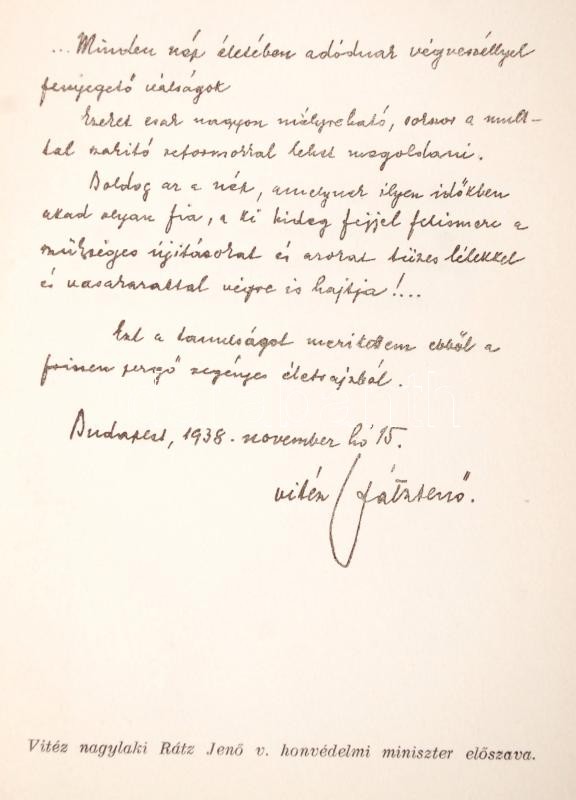 ... Minden nép életében adódnak végveszéllyel
fenyegető válságok
Ezeket csak nagyon mélyreható, sokszor a mult-
tal szakító reformokkal lehet megoldani.
Boldog az a nép, amelynek ilyen időkben
akad olyan fia, a ki hideg fejjel felismeri a
szükséges újításokat és azokat tüzes lélekkel
és vasakarattal végre is hajtja!...
Ezt a tanulságot merítettem ebből a
frissen pergő regényes életrajzból.
Budapest, 1938. november hó 15.
vitéz Rátz Jenő.
Vitéz nagylaki Rátz Jenő v. honvédelmi miniszter előszava.